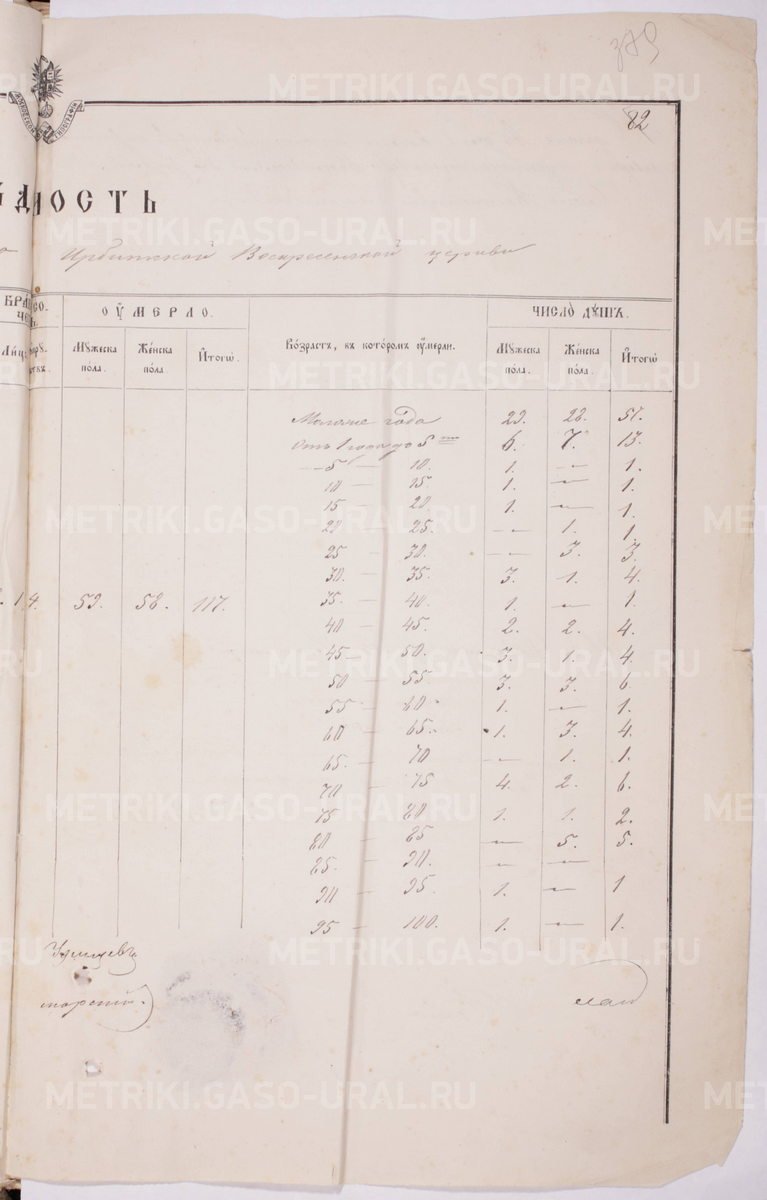 379
82
ѢДОМОСТЬ
Ирбитской Воскресенской церкви
БРАКОСО-
ЧЕТ.
ОУМЕРЛО.
Возрастъ, въ которомъ оумерли.
ЧИСЛО ДУШЪ.
Мужеска пола.
Женска пола.
Итогѡ
Мужеска пола.
Женска пола.
Итогѡ
Моложе года 29. 28. 57.
Отъ 1 года до 5 6. 7. 13.
— 5 — 10. 1. — 1.
10 — 15. 1. — 1.
15 20. 1. — 1.
20 — 25. — 1. 1.
25 — 30. — 3. 3.
30. — 35. 3. 1. 4.
14. 59. 58. 117. 35. — 40. 1. — 1.
40 — 45. 2. 2. 4.
45 — 50. 3. 1. 4.
50 — 55. 3. 3. 6.
55 — 60. 1. — 1.
60 — 65. 1. 3. 4.
65. — 70 — 1. 1.
70 — 75 4. 2. 6.
75 80 1. 1. 2.
80 — 85 — 5. 5.
85. — 90. — —
90 — 95. 1. — 1
95 — 100. 1. — 1.
METRIKI.GASO-URAL.RU